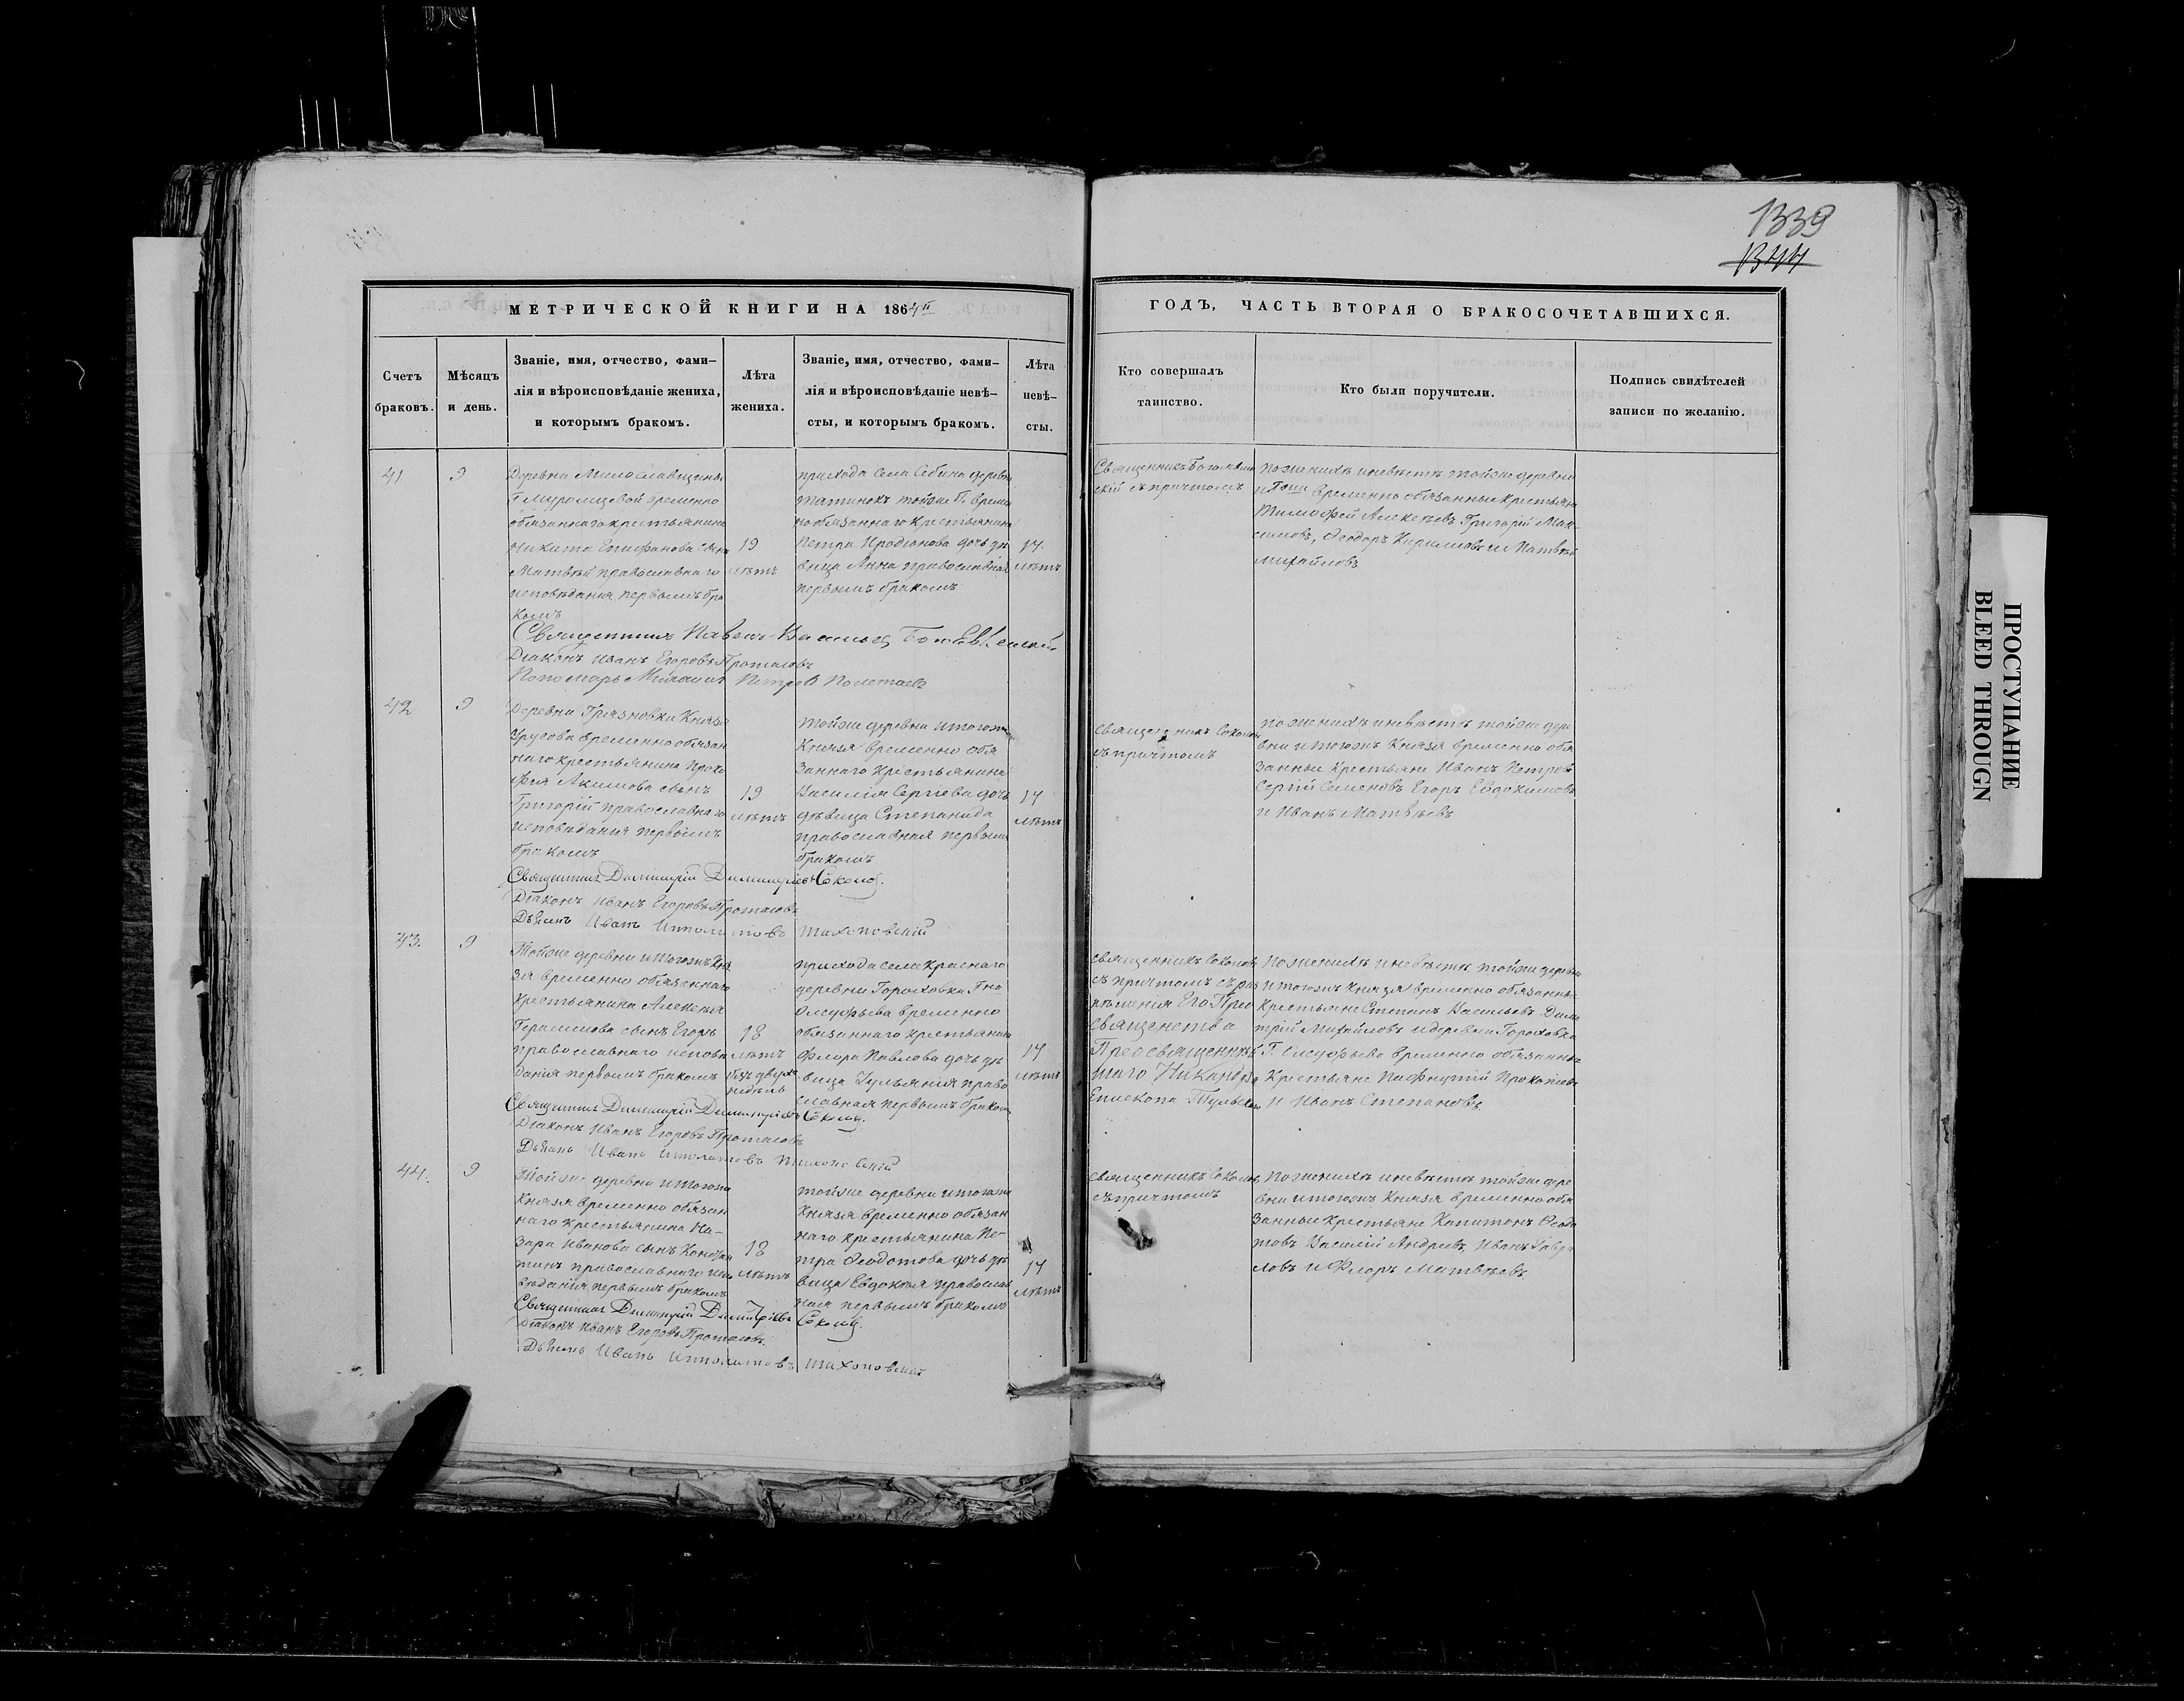 1339
1344
МЕТРИЧЕСКОЙ КНИГИ НА 1864й
ГОДЪ, ЧАСТЬ ВТОРАЯ О БРАКОСОЧЕТАВШИХСЯ.
Счетъ
браковъ.
Мѣсяцъ
и день.
Званіе, имя, отчество, фами–
лія и вѣроисповѣданіе жениха,
и которымъ бракомъ.
Лѣта
жениха.
Званіе, имя, отчество, фами–
лія и вѣроисповѣданіе невѣ–
сты, и которымъ бракомъ.
Лѣта
невѣ–
сты.
Кто совершалъ
таинство.
Кто были поручители.
Подпись свидѣтелей
записи по желанію.
41
9
Деревни Милославщины
Г. Муромцевой временно
обязаннаго крестьянина
Никита Епифанова сынъ
Матвѣй православнаго
исповѣданія первымъ бра
комъ
19
лѣтъ
прихода села Себина деревни
Татинокъ тойже Г. времен
но обязаннаго крестьянина
Петра Иродіонова дочь дѣ
вица Анна православная
первымъ бракомъ
17
лѣтъ
Священникъ
скій съ причтомъ
по женихѣ и невѣстѣ тойже деревни
и Гжи временно обязанные крестьяне
Тимофей Алексѣевъ Григорій Мак
симовъ, Ѳеодоръ Кириловъ и Матвѣй
Михайловъ
Священникъ Павелъ
Діаконъ Иванъ Егоровъ Протасовъ
Пономарь Михаилъ Петровъ Полетаевъ
42
9
Деревни Грязновки Князя
Урусова временно обязан
наго крестьянина Проко
фія Акимова сынъ
Григорій православнаго
исповѣданія первымъ
бракомъ
19
лѣтъ
тойже деревни и тогожъ
Князя временно обя
заннаго крестьянина
Василія Сергіева дочь
дѣвица Степанида
православная первымъ
бракомъ
17
лѣтъ
Священникъ Соколовъ
съ причтомъ
по женихѣ и невѣстѣ тойже дере
вни и тогожъ Князя временно обя
занные крестьяне Иванъ Петровъ
Сергій Семеновъ Егоръ Евдокимовъ
и Иванъ Матвѣевъ
Священникъ Димитрій Димитріевъ Соколовъ.
Діаконъ Иванъ Егоровъ Протасовъ
Дьячекъ Иванъ Ипполитовъ
43.
9
Тойже деревни и тогожъ Кня
зя временно обязаннаго
крестьянина Алексѣя
Герасимова сынъ Егоръ
православнаго исповѣ
данія первымъ бракомъ
18
лѣтъ
безъ двухъ
недѣль
прихода села Краснаго
деревни Гороховки Гна
Олсуфьева временно
обязаннаго крестьянина
Флора Павлова дочь дѣ
вица Іульянія право
славная первымъ бракомъ
17
лѣтъ
Священникъ Соколовъ
съ причтомъ съ раз
рѣшенія Его Прео
священства
Преосвященнѣй
шаго Никандра
Епископа Тульскаго
По женихѣ и невѣстѣ тойже деревни
и тогожъ Князя временно обязанные
крестьяне Степанъ Васильевъ Дими
трій Михайловъ и деревни Гороховки
Г. Олсуфьева временно обязанные
крестьяне Пафнутій Прокопіевъ
и Иванъ Степановъ
Священникъ Димитрій Димитріевъ Соколовъ.
Діаконъ Иванъ Егоровъ Протасовъ
Дьячекъ Иванъ Ипполитовъ
44.
9
Тойже деревни и тогожъ
Князя временно обязан
наго крестьянина На–
зара Иванова сынъ Констан
тинъ православнаго испо
вѣданія первымъ бракомъ
18
лѣтъ
тойже деревни и тогожъ
Князя временно обязан
наго крестьянина Пе–
тра Ѳеодотова дочь дѣ
вица Евдокія православ
ная первымъ бракомъ
17
лѣтъ
Священникъ Соколовъ
съ причтомъ
По женихѣ и невѣстѣ тойже дере
вни и тогожъ Князя временно обя
занные крестьяне Капитонъ Ѳеодо
товъ Василій Андреевъ, Иванъ Гаври
ловъ и Флоръ Матвѣевъ
Священникъ Димитрій Димитріевъ Соколовъ.
Діаконъ Иванъ Егоровъ Протасовъ.
Дьячекъ Иванъ Ипполитовъ
ПРОСТУПАНИЕ
BLEED THROUGN